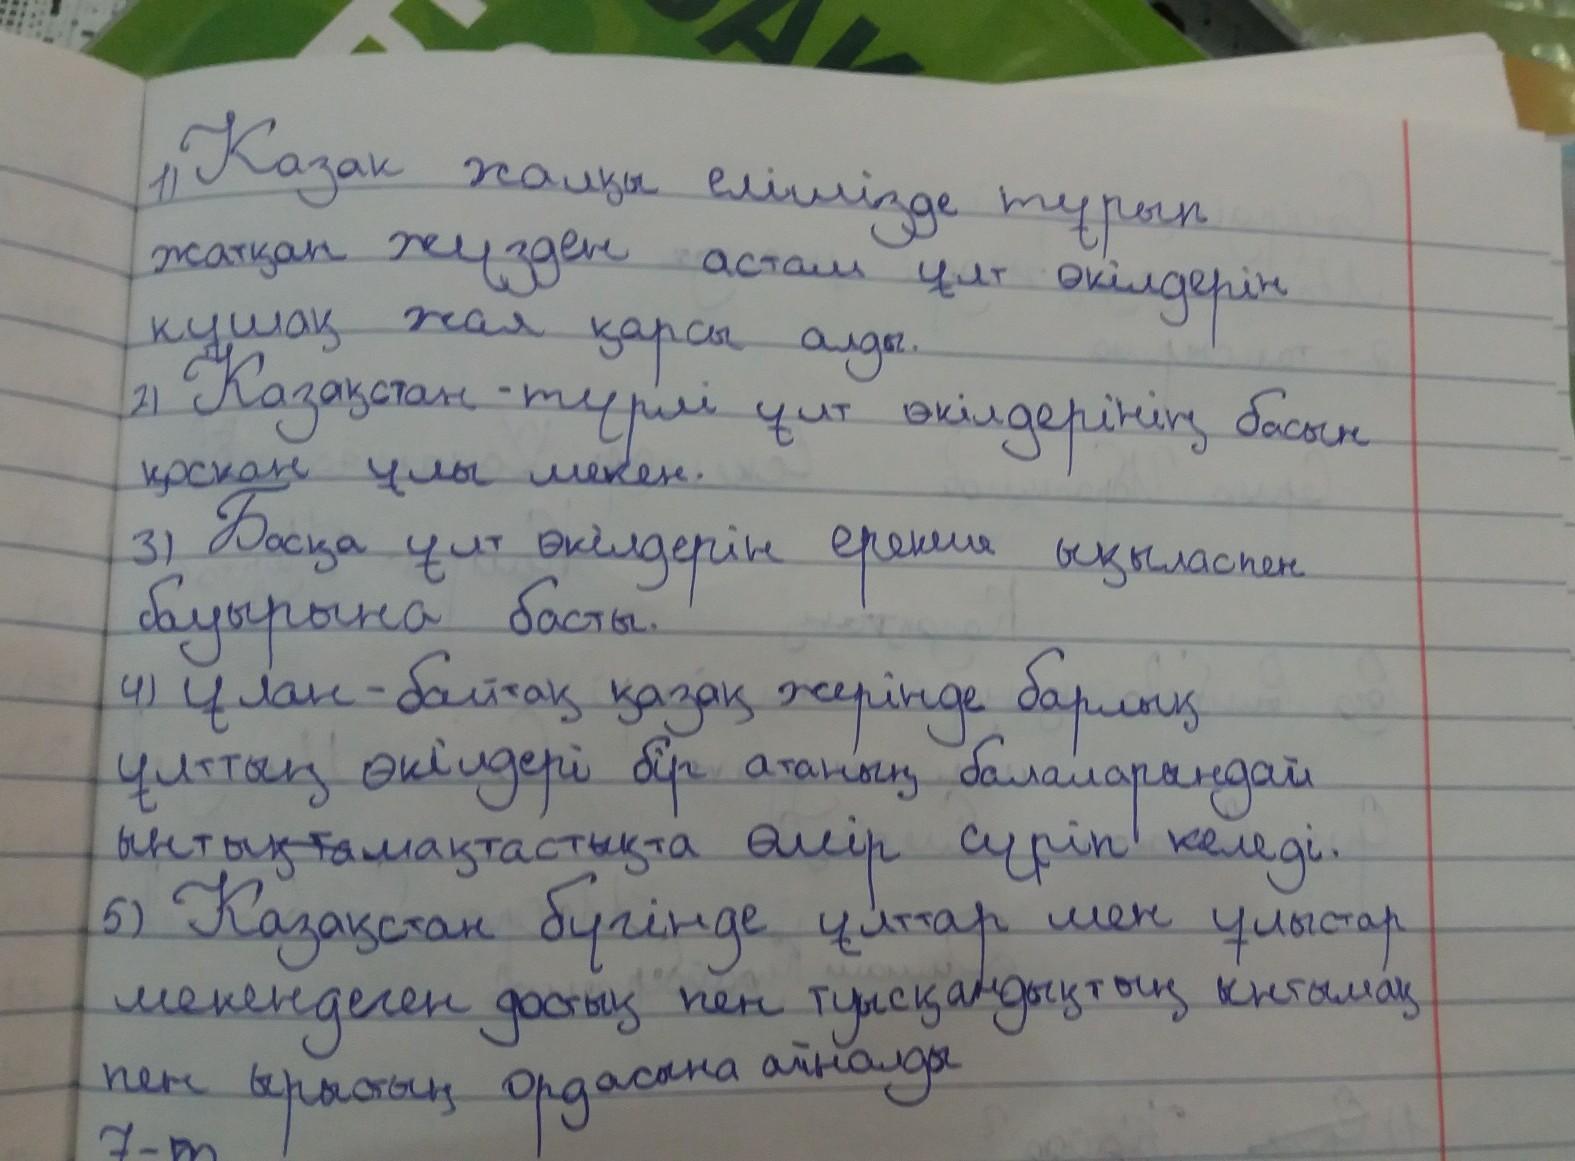 ЗАК
1) Казак жалқы елімізде тұрып
жатқан жүзден астам ұлт өкілдерін
кушақ жая қарсы алды.
2) Қазақстан - түрлі ұлт өкілдерінің басын
қосқан ұлы мекен.
3) Басқа ұлт өкілдерін ерекше ықыласпен
бауырына басты.
4) Ұлан - байтақ қазақ жерінде барлық
ұлттың өкілдері бір атаның балаларындай
ынтық тамақтастықта өмір сүріп келеді.
5) Қазақстан бүгінде ұлттар мен ұлыстар
мекендеген достық пен туысқандықтың ынтымақ
пен ырыстың ордасына айналды
7-т